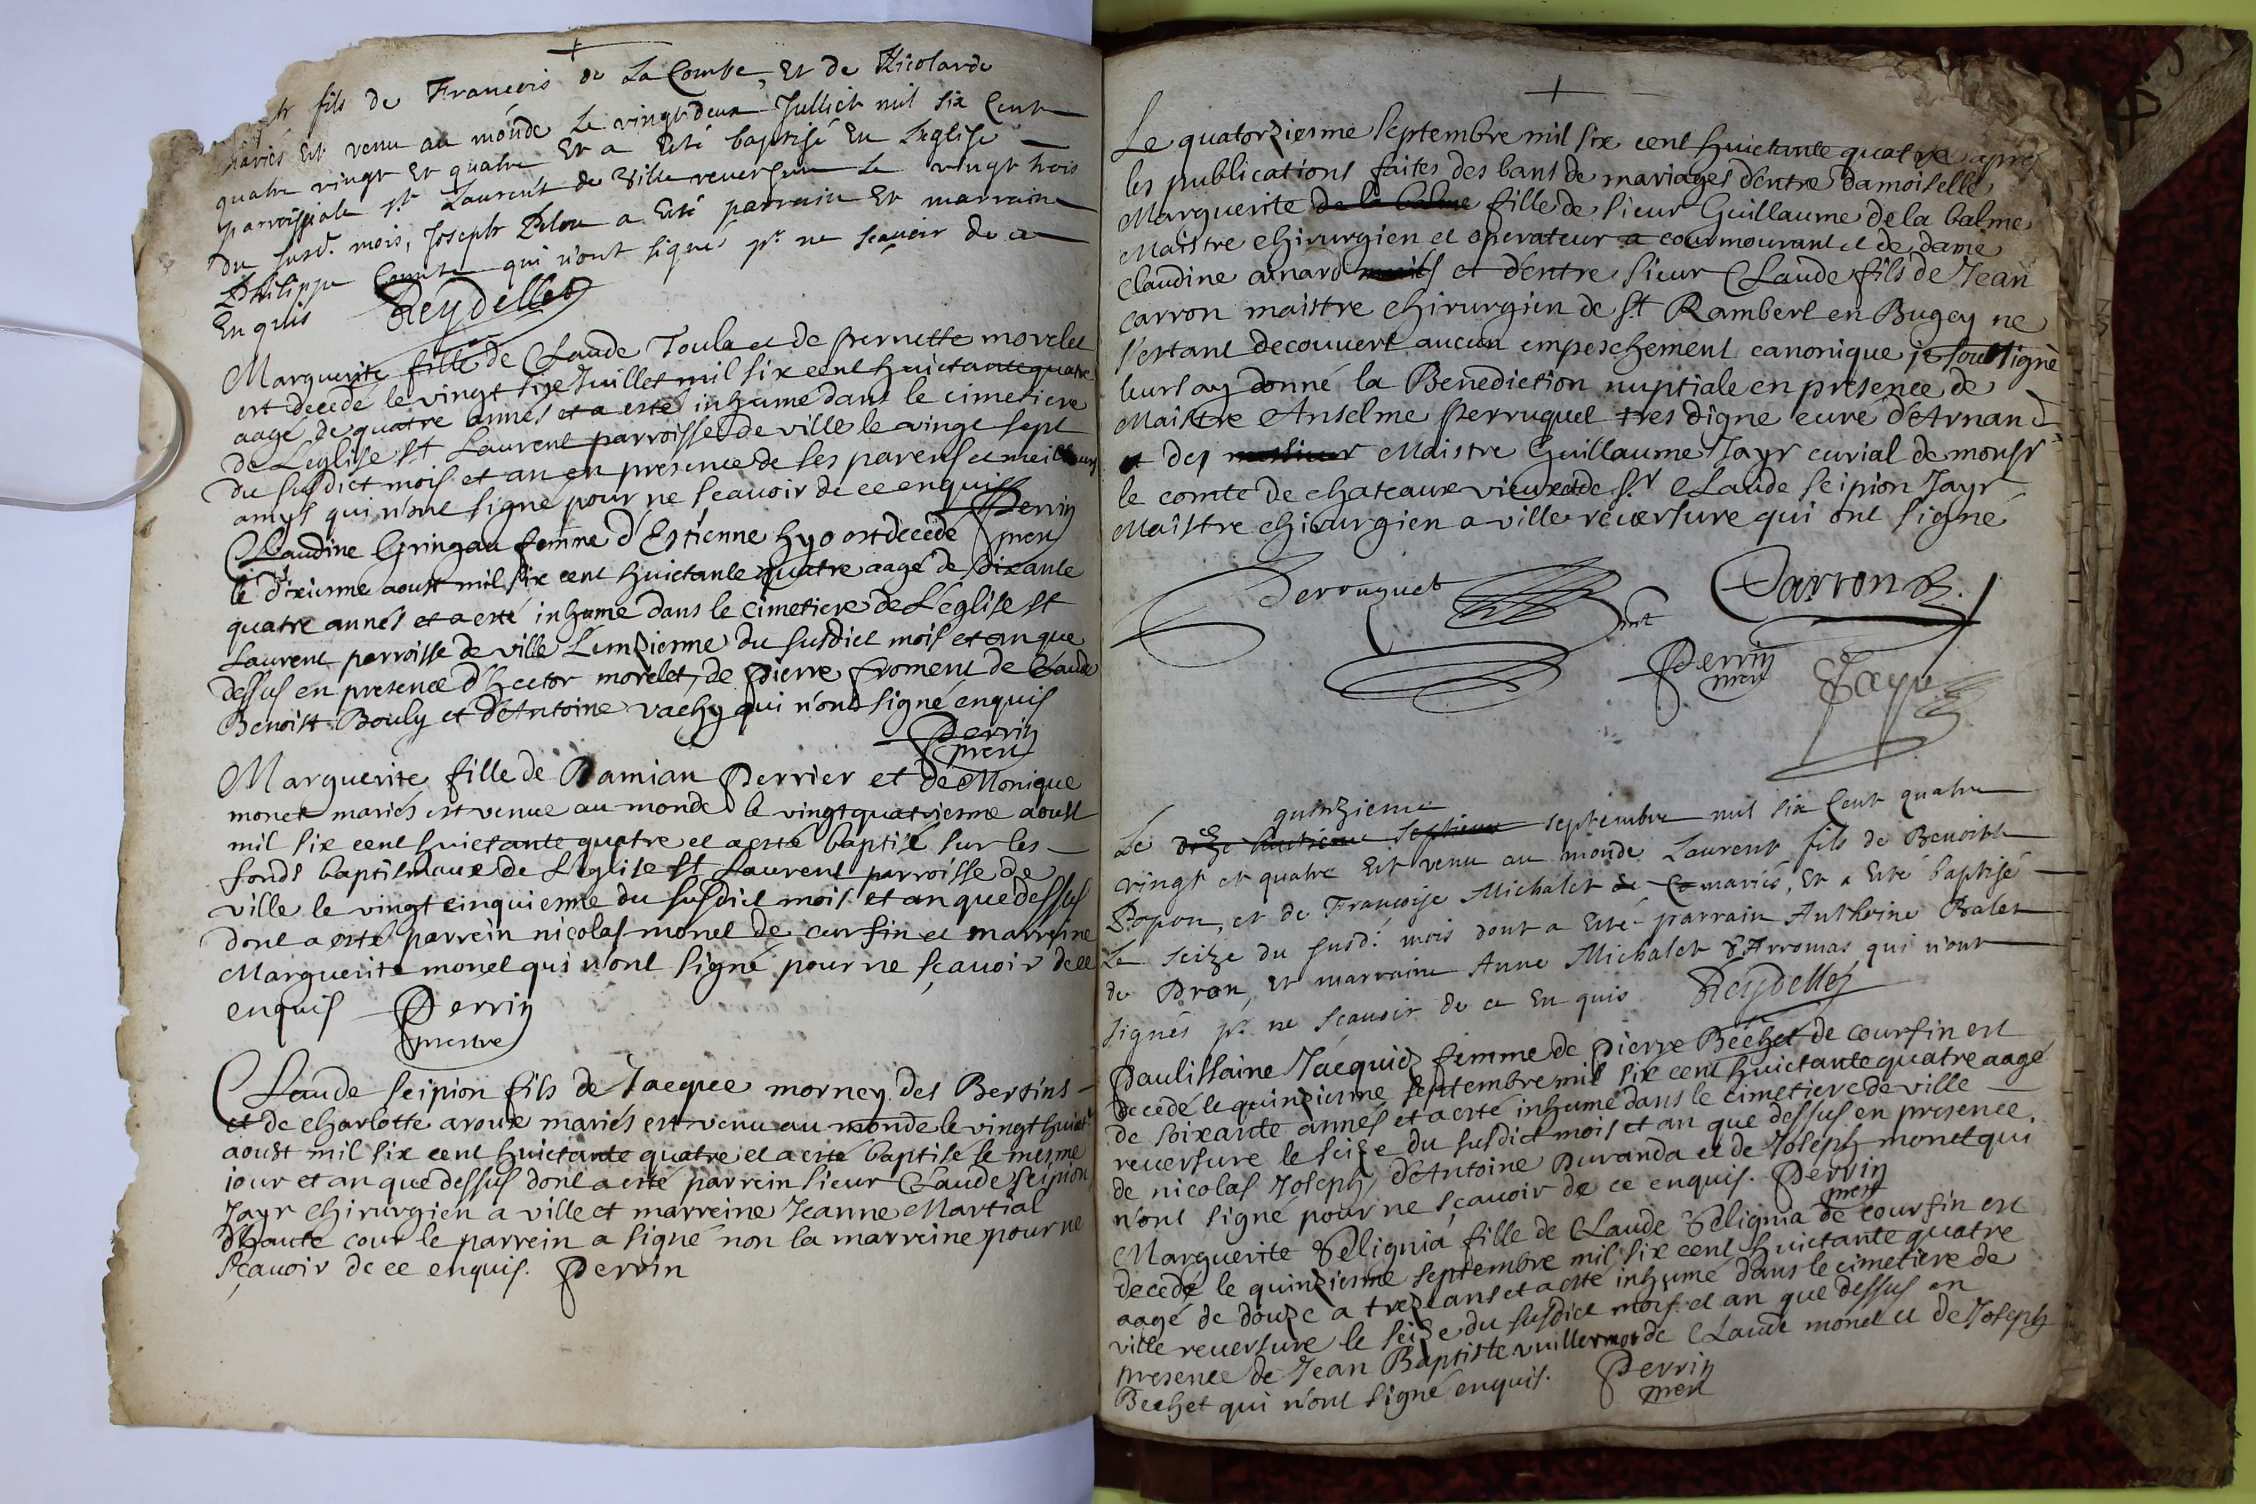 fils de Francois de La Combe, Et de Nicolarde
mariés Est venu au monde Le vingtdeux Julliet mil six Cent
quatre vingt Et quatre Et a Esté baptisé En L'eglise
parroissiale st Laurent de Ville reversure Le vingt trois
du susd. mois, Joseph a Esté parrain Et marraine
Philippe Comte qui n'ont signé pr. ne scavoir de ce
Enquis Reydellet
Marguerite fille de Claude Toula et de pernette morelet
est decedé le vingt sixe Juillet mil six cent huictante quatre
aagé de quatre annés et a esté inhumé dans le cimetiere
de L'eglise st Laurent parroisse de ville le vingt sept
du susdict mois et an en presence de ses parens et meilleurs
amys qui n'ont signé pour ne scavoir de ce enquis Perrin
Claudine Gringau femme d'Estienne hyo est decedé
le dixiesme aoust mil six cent huictante quatre aagé de soixante
quatre annés et a esté inhumé dans le cimetiere de L'eglise st
Laurent parroisse de ville L'unziesme du susdict mois et an que
dessus en presence d'hector morelet, de pierre froment de Claude
Benoist Bouly et d'Antoine vachy qui n'ont signé enquis
Perrin
Marguerite fille de Damian Perrier et de Monique
monet mariés est venue au monde le vingtquatriesme aoust
mil six cent huictante quatre et a esté baptisé sur les
fonds baptismaux de L'eglise st Laurent parroisse de
ville le vingt cinquiesme du susdict mois et an que dessus
dont a esté parrein nicolas monet de curfin et marreine
Marguerite monet qui n'ont signé pour ne sçavoir de ce
enquis Perrin
Claude scipion fils de Jacques morney des Bertins
et de charlotte aroux mariés est venu au monde le vingt huict
aoust mil six cent huictante quatre et a esté baptisé le mesme
iour et an que dessus dont a esté parrein sieur Claude scipion
Jayr chirurgien a ville et marreine Jeanne Martial
d'haute cour le parrein a signé non la marreine pour ne
sçavoir de ce enquis. Perrin
Le quatorziesme septembre mil six cent huictante quatre apres
les publications faites des bans de mariages d'entre damoiselle
Marguerite de la balme fille de sieur Guillaume de la balme
Maistre chirurgien et operateur a cour mourant et de dame
Claudine ainard mariés et d'entre sieur Claude fils de Jean
carron maistre chirurgien de st Rambert en Bugey ne
s'estant decouvert aucun empeschement canonique je soubsigné
leurs ay donné la Benediction nuptiale en presence de
Maistre Anselme perruquet tres digne curé d'Arnan
et de Maistre Guillaume Jayr curial de monsr
le comte de chateaux vieux et de sr Claude scipion Jayr
Maistre chirurgien a ville reversure qui ont signé
Perruquet
Carron
Perrin
Jayr
quinzieme
Le septembre mil six Cent quatre
vingt et quatre Est venu au monde Laurent fils de Benoist
Popon, et de Francoise Michalet mariés, Et a Esté baptisé
Le seize du susd. mois dont a Esté parrain Anthoine Balet
de Dron, et marraine Anne Michalet d'Arromas qui n'ont
signés pr. ne scavoir de ce En quis Reydellet
Paulissaine Jacquier femme de pierre Bechet de courfin est
decedé le quinziesme septembre mil six cent huictante quatre aagé
de soixante annés et a esté inhumé dans le cimetiere de ville
reversure le seize du susdict mois et an que dessus en presence
de nicolas Joseph, d'Antoine Duranda et de Joseph monet qui
n'ont signé pour ne sçavoir de ce enquis. Perrin
Marguerite Velignia fille de Claude Velignia de courfin est
decedé le quinziesme septembre mil six cent huictante quatre
aagé de douze a treze ans et a esté inhumé dans le cimetiere de
ville reversure le seize du susdict mois et an que dessus en
presence de Jean Baptiste vuillermoz de Claude monet et de Joseph
Bechet qui n'ont signé enquis. Perrin